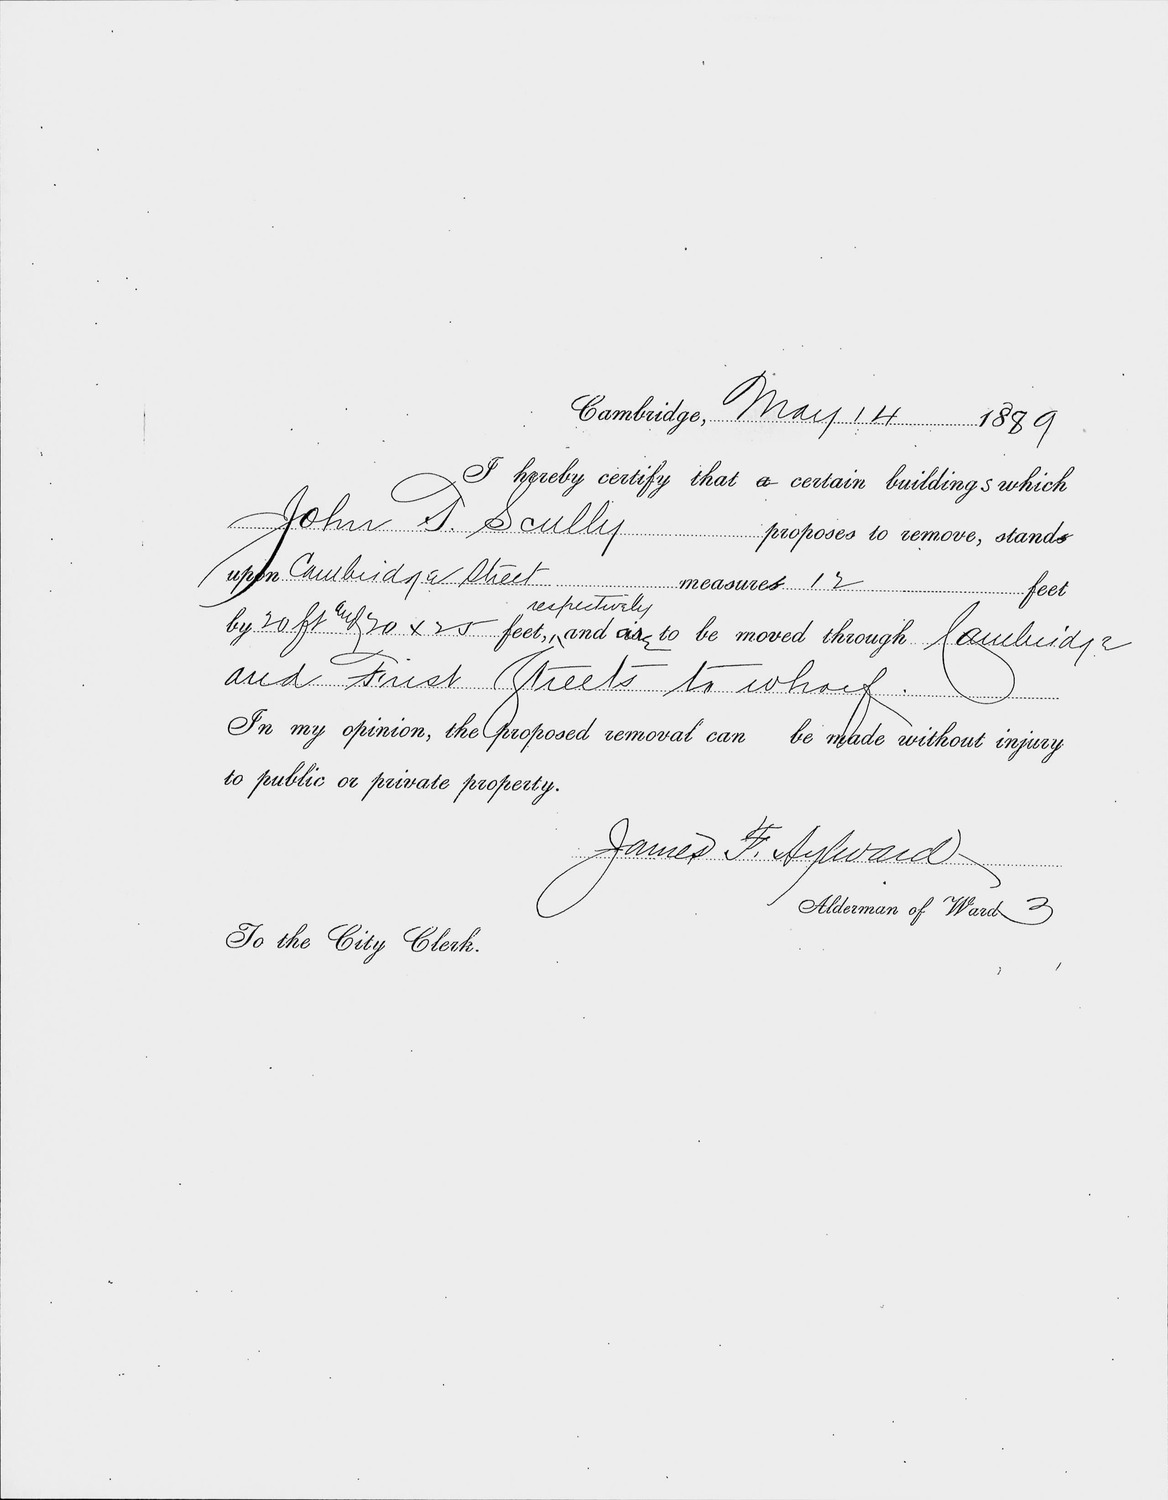 Cambridge, May 14 1889
I hereby certify that a certain buildings which
John T. Scully proposes to remove, stands
upon Cambridge Street measures 12 feet
respectively
by 20 ft and 20 x 25 feet, and are to be moved through Cambridge
and First Streets to wharf.
In my opinion, the proposed removal can be made without injury
to public or private property.
James F. Aylward
Alderman of Ward 3
To the City Clerk.